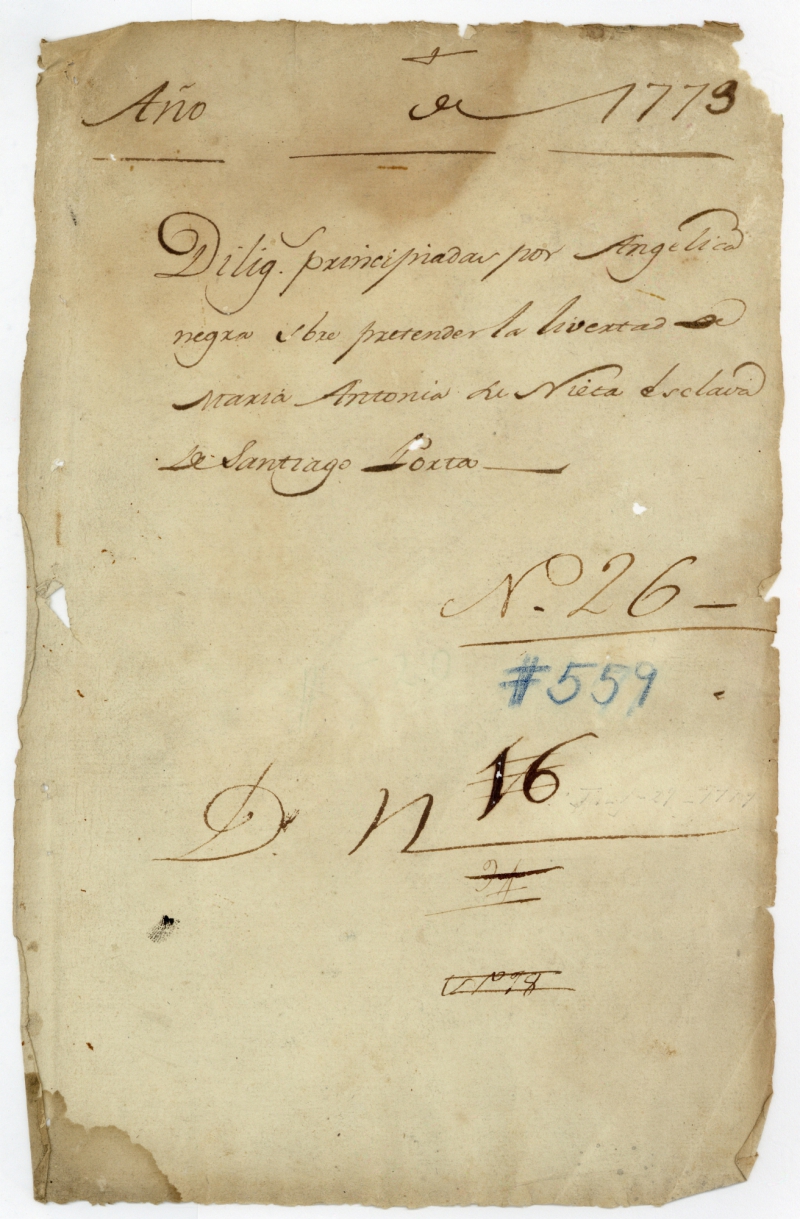 Año de 1773
Dilig.s principiadas por Angelica
negra sbre pretender la livertad de
Maria Antonia su Nieta esclava
de Santiago Porta
No. 26
#559
D. n 16